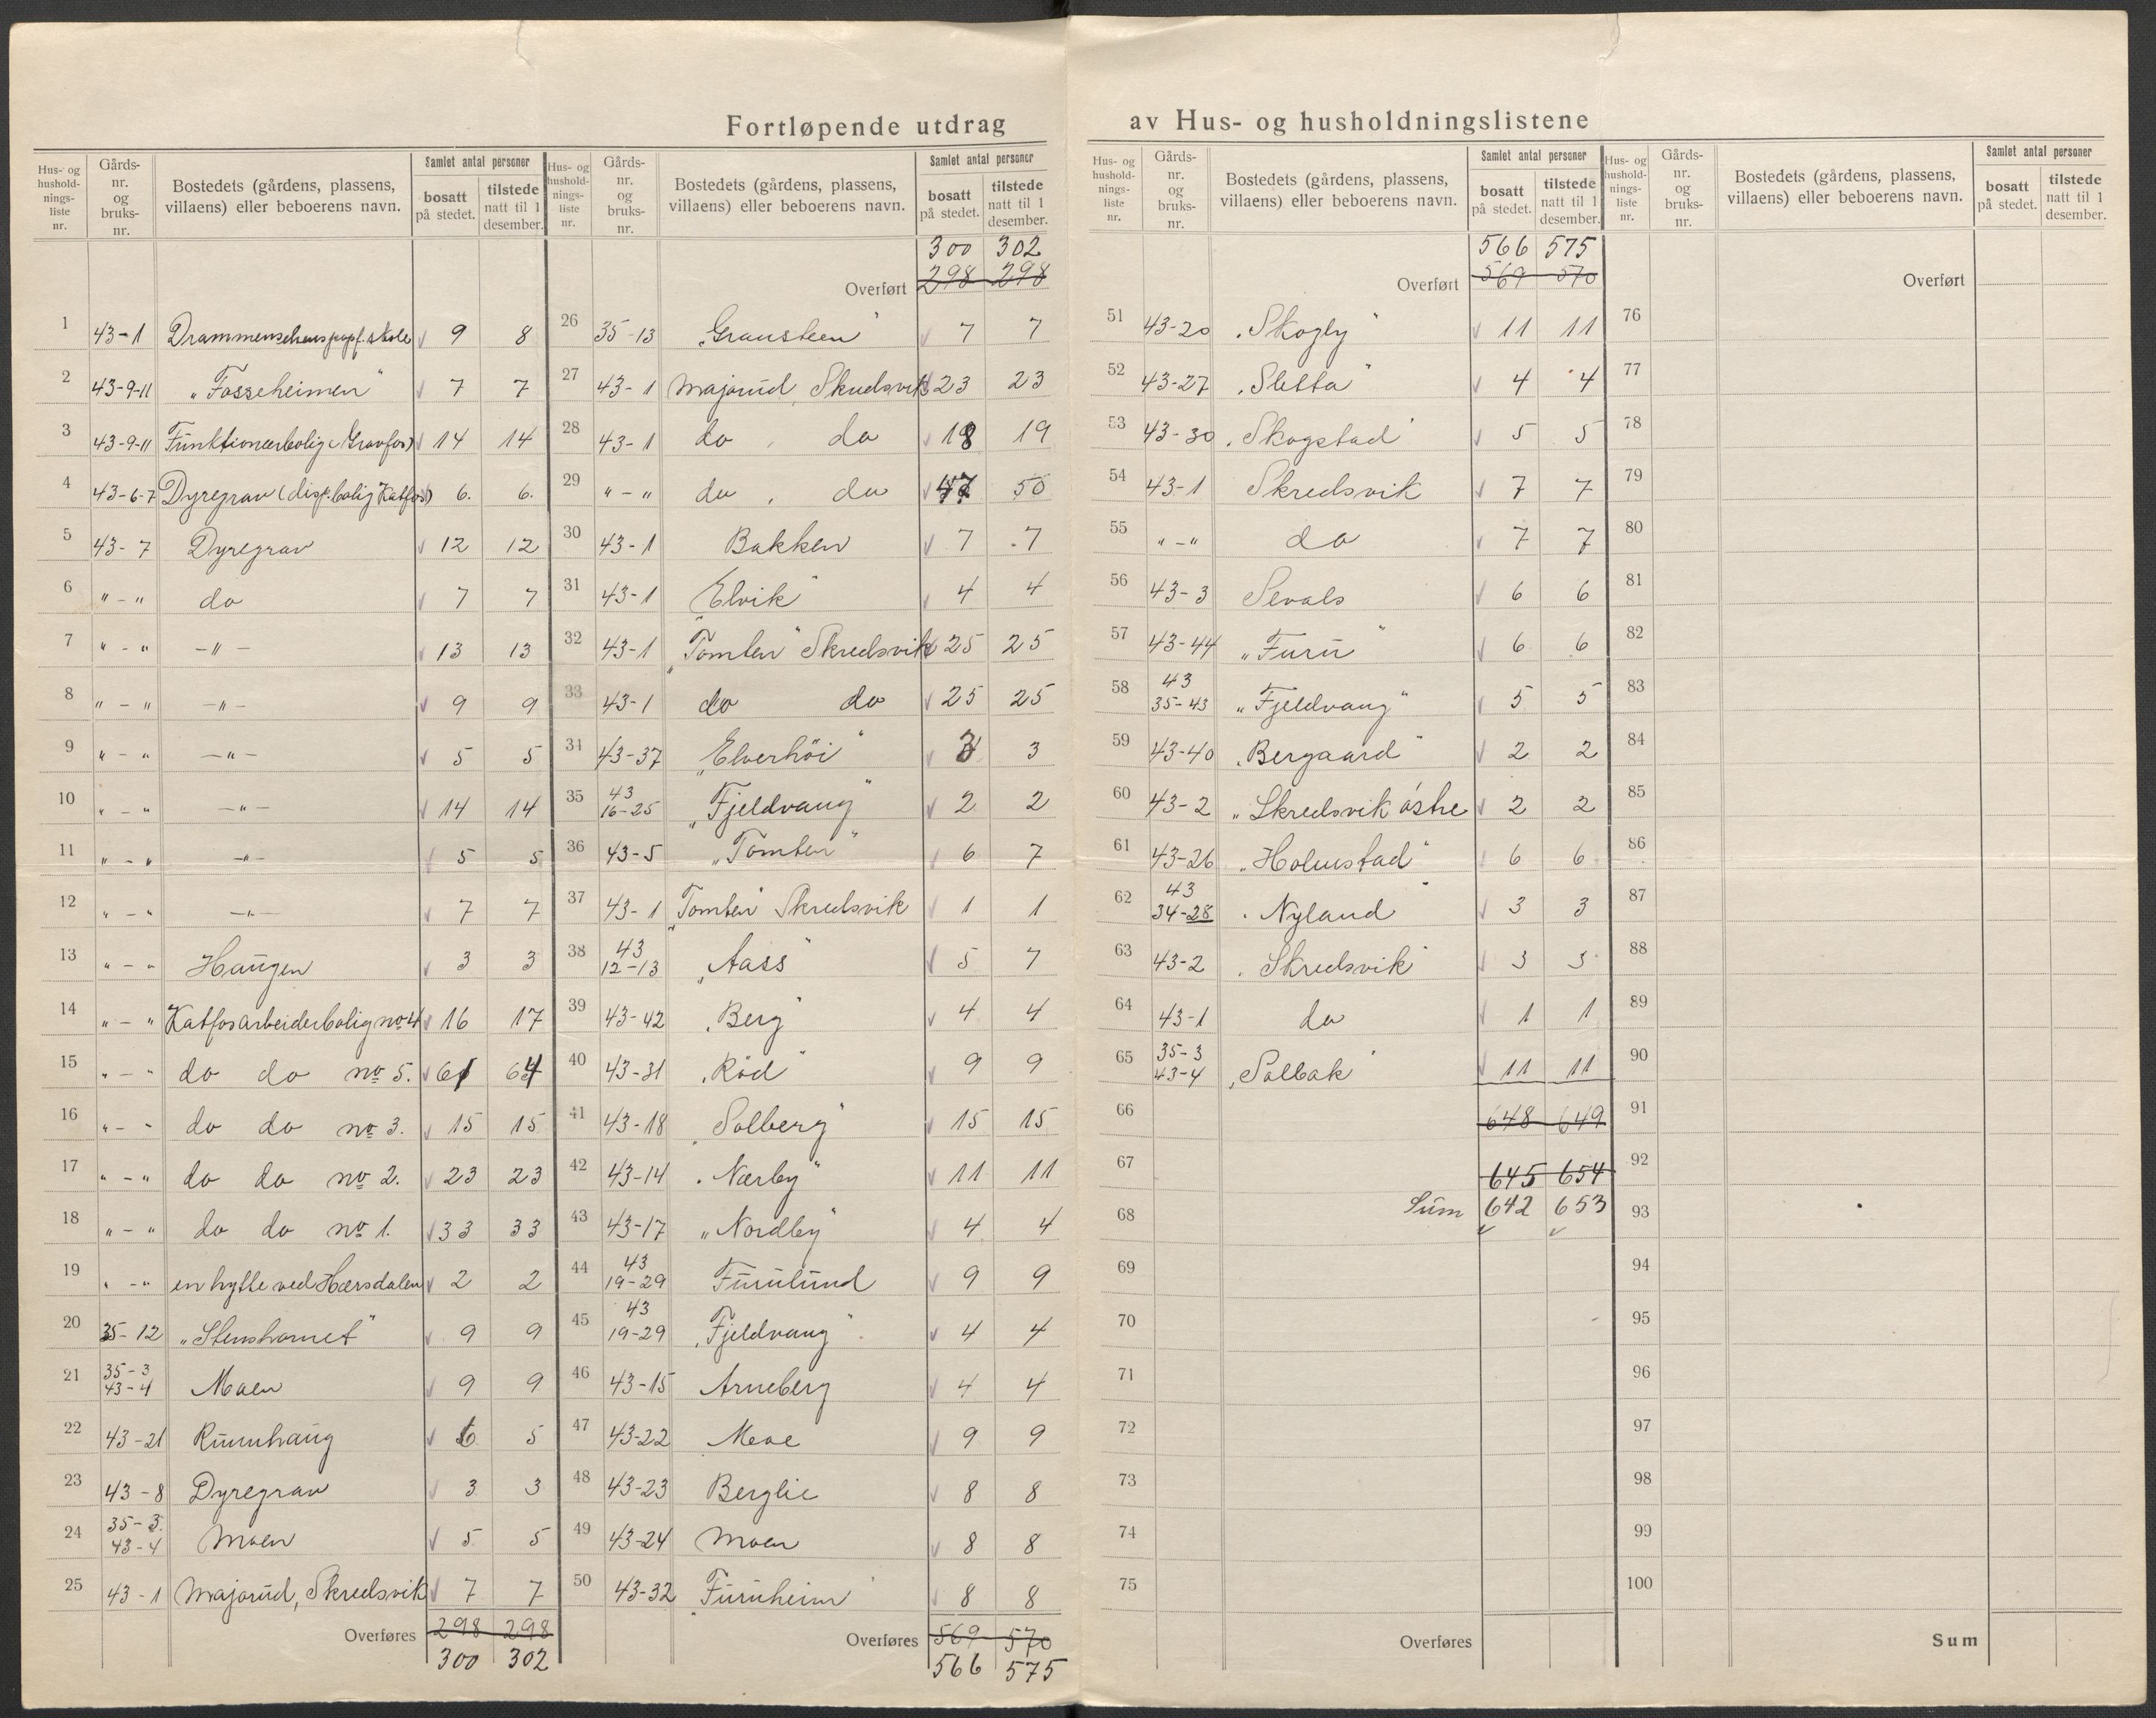 Fortløpende utdrag av Hus- og husholdningslistene
Hus- og husholdningsliste nr. Gårds-nr. og bruks-nr. Bostedets (gårdens, plassens, villaens) eller beboerens navn. Samlet antal personer bosatt på stedet. tilstede natt til 1 desember.
1 43-1 9 8
2 43-9-11 "Fosseheimen" 7 7
3 43-9-11 Funktionærbolig (Gravfos) 14 14
4 43-6-7 Dyregrav (disp. bolig Katfos) 6. 6.
5 43-7 Dyregrav 12 12
6 " - " do 7 7
7 " - " - " - 13 13
8 " - " - " - 9 9
9 " - " - " - 5 5
10 " - " - " - 14 14
11 " - " - " - 5 5
12 " - " - " - 7 7
13 " - " Haugen 3 3
14 " - " Katfos arbeiderbolig no 4 16 17
15 " - " do do no 5. 61 64
16 " - " do do no 3. 15 15
17 " - " do do no 2. 23 23
18 " - " do do no 1. 33 33
19 " - " en hytte ved Hærsdalen 2 2
20 35-12 "Stenshornet" 9 9
21 35-3 43-4 Moen 9 9
22 43-21 Rumnhaug 6 5
23 43-8 Dyregrav 3 3
24 35-3. 43-4 Moen 5 5
25 43-1 Majorud, Skredsvik 7 7
Overføres 298 298
300 302
Hus- og husholdningsliste nr. Gårds-nr. og bruks-nr. Bostedets (gårdens, plassens, villaens) eller beboerens navn. Samlet antal personer bosatt på stedet. tilstede natt til 1 desember.
300 302
Overført 298 298
26 35-13 "Gransteen" 7 7
27 43-1 Majorud, Skredsvik 23 23
28 43-1 do, do 18 19
29 " - " do, do 47 50
30 43-1 Bakken 7 7
31 43-1 "Elvik" 4 4
32 43-1 "Tomten" Skredsvik 25 25
33 43-1 do do 25 25
34 43-37 "Elverhöi" 3 3
35 43 16-25 "Fjeldvang" 2 2
36 43-5 "Tomten" 6 7
37 43-1 "Tomten" Skredsvik 1 1
38 43 12-13 "Aass" 5 7
39 43-42 "Berg" 4 4
40 43-31 "Röd" 9 9
41 43-18 "Solberg" 15 15
42 43-14 "Nærby" 11 11
43 43-17 "Nordby" 4 4
44 43 19-29 Furulund 9 9
45 43 19-29 "Fjeldvang" 4 4
46 43-15 Arneberg 4 4
47 43-22 Moe 9 9
48 43-23 Berglie 8 8
49 43-24 Moen 8 8
50 43-32 "Furuheim" 8 8
Overføres 569 570
566 575
Hus- og husholdningsliste nr. Gårds-nr. og bruks-nr. Bostedets (gårdens, plassens, villaens) eller beboerens navn. Samlet antal personer bosatt på stedet. tilstede natt til 1 desember.
566 575
Overført 569 570
51 43-20 "Skogly" 11 11
52 43-27 "Sletta" 4 4
53 43-30 "Skogstad" 5 5
54 43-1 Skredsvik 7 7
55 " - " do 7 7
56 43-3 Sevals 6 6
57 43-44 "Furu" 6 6
58 43 35-43 "Fjeldvang" 5 5
59 43-40 "Bergaard" 2 2
60 43-2 "Skredsvik östre 2 2
61 43-26 "Holmstad" 6 6
62 43 34-28 "Nyland" 3 3
63 43-2 "Skredsvik" 3 3
64 43-1 do 1 1
65 35-3 43-4 "Solbak" 11 11
66 648 649
67 645 654
68 Sum 642 653
69
70
71
72
73
74
75
Overføres
Hus- og husholdningsliste nr. Gårds-nr. og bruks-nr. Bostedets (gårdens, plassens, villaens) eller beboerens navn. Samlet antal personer bosatt på stedet. tilstede natt til 1 desember.
Overført
76
77
78
79
80
81
82
83
84
85
86
87
88
89
90
91
92
93
94
95
96
97
98
99
100
Sum